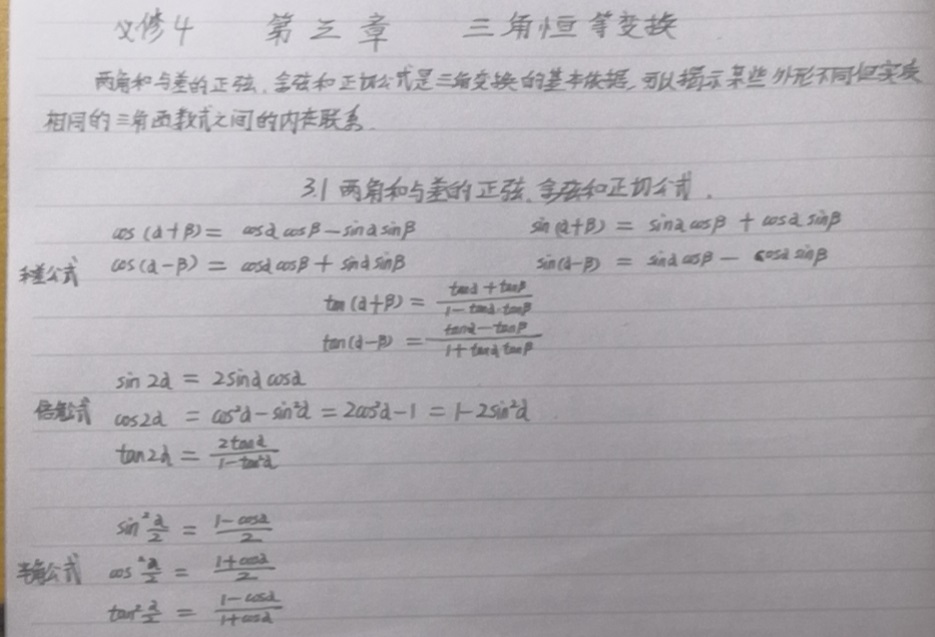 必修4 第三章 三角恒等变换
两角和与差的正弦、余弦和正切公式是三角变换的基本依据,可以揭示某些外形不同但实质
相同的三角函数式之间的内在联系.
3.1 两角和与差的正弦、余弦和正切公式.
cos(α+β) = cosα cosβ - sinα sinβ sin(α+β) = sinα cosβ + cosα sinβ
和差公式 cos(α-β) = cosα cosβ + sinα sinβ sin(α-β) = sinα cosβ - cosα sinβ
tan(α+β) = (tanα + tanβ)/(1 - tanα·tanβ)
tan(α-β) = (tanα - tanβ)/(1 + tanα tanβ)
sin2α = 2sinα cosα
倍角公式 cos2α = cos²α - sin²α = 2cos²α - 1 = 1 - 2sin²α
tan2α = 2tanα/(1 - tan²α)
sin²α/2 = (1 - cosα)/2
半角公式 cos²α/2 = (1 + cosα)/2
tan²α/2 = (1 - cosα)/(1 + cosα)